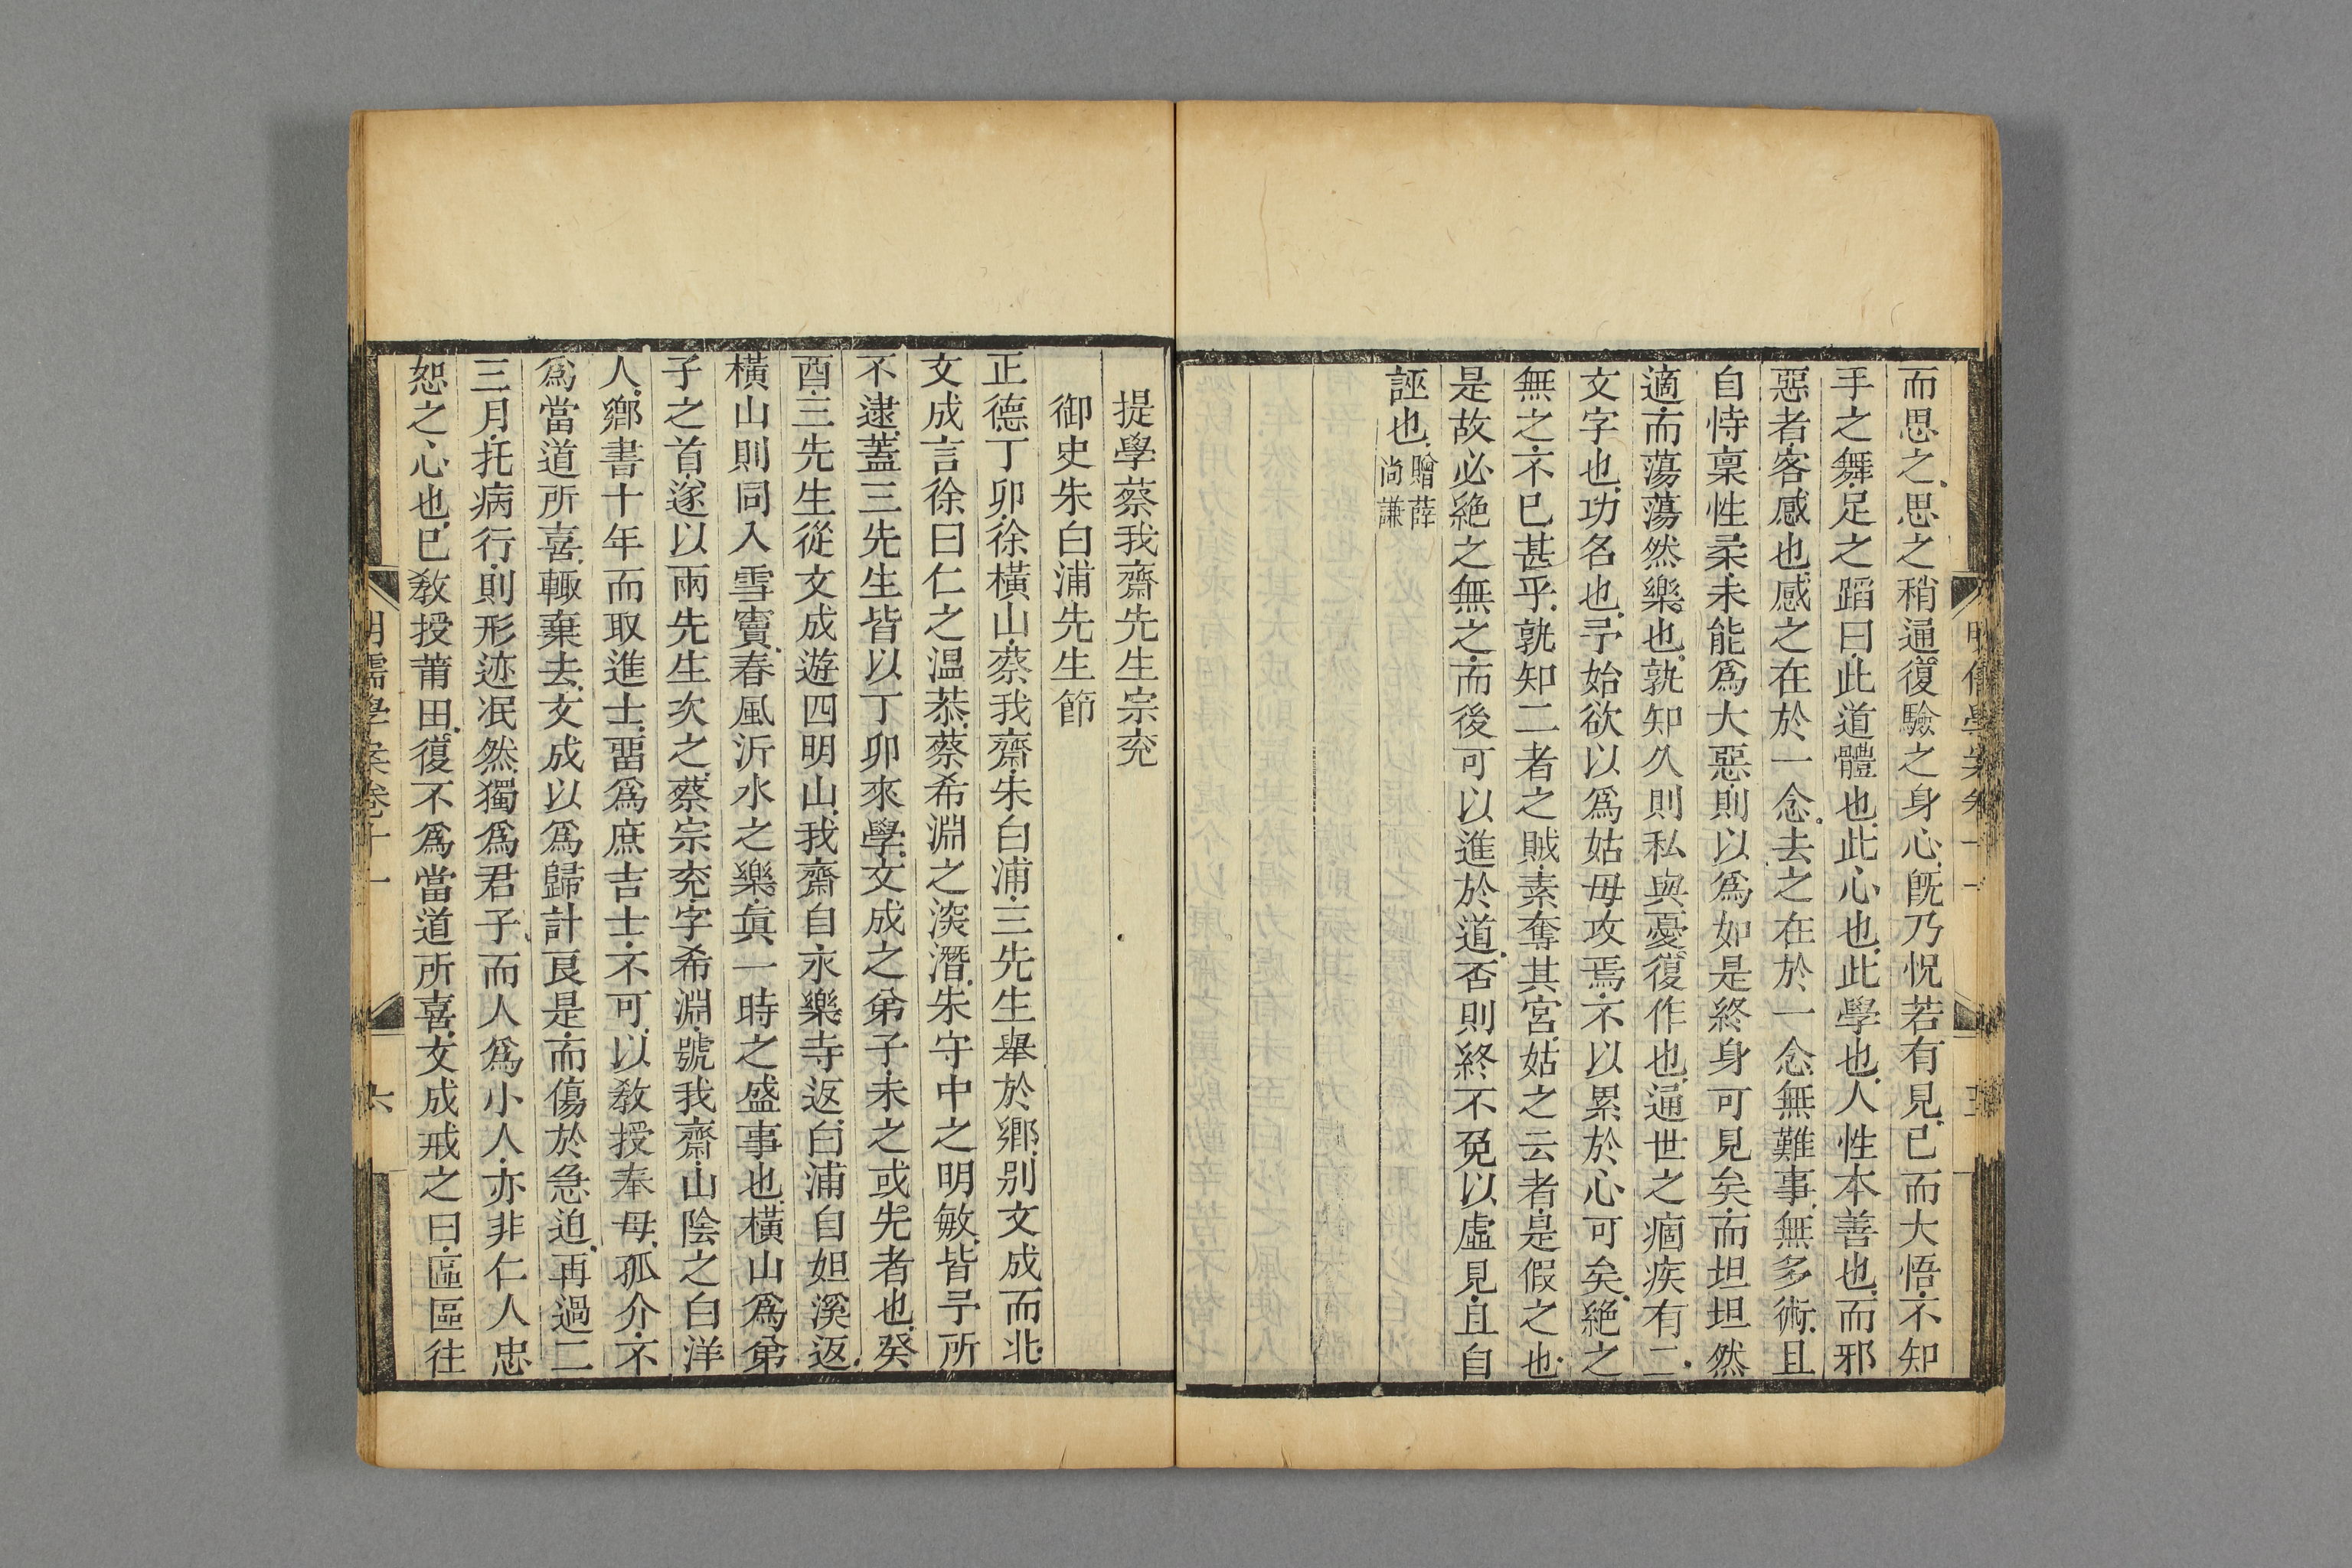 而思之思之稍通復驗之身心旣乃怳若有見已而大悟不知
手之舞足之蹈曰此道體也此心也此學也人性本善也而邪
惡者客感也感之在於一念去之在於一念無難事無多術且
自恃稟性柔未能爲大惡則以爲如是終身可見矣而坦坦然
適而蕩蕩然樂也孰知久則私與憂復作也通世之痼疾有二
文字也功名也予始欲以爲姑毋攻焉不以累於心可矣絶之
無之不已甚乎孰知二者之賊素奪其宮姑之云者是假之也
是故必絶之無之而後可以進於道否則終不免以虛見且自
誣也贈薛尚謙
提學蔡我齋先生宗兖
御史朱白浦先生節
正德丁卯徐橫山蔡我齋朱白浦三先生舉於鄉别文成而北
文成言徐曰仁之溫恭蔡希淵之深潛朱守中之明敏皆予所
不逮蓋三先生皆以丁卯來學文成之弟子未之或先者也癸
酉三先生從文成遊四明山我齋自永樂寺返白浦自妲溪返
橫山則同入雪竇春風沂水之樂眞一時之盛事也橫山爲弟
子之首遂以兩先生次之蔡宗兖字希淵號我齋山陰之白洋
人鄉書十年而取進士畱爲庶吉士不可以敎授奉母孤介不
爲當道所喜輒棄去文成以爲歸計良是而傷於急迫再過二
三月托病行則形迹泯然獨爲君子而人爲小人亦非仁人忠
恕之心也已敎授莆田復不爲當道所喜文成戒之曰區區往
明儒學案卷十一
六